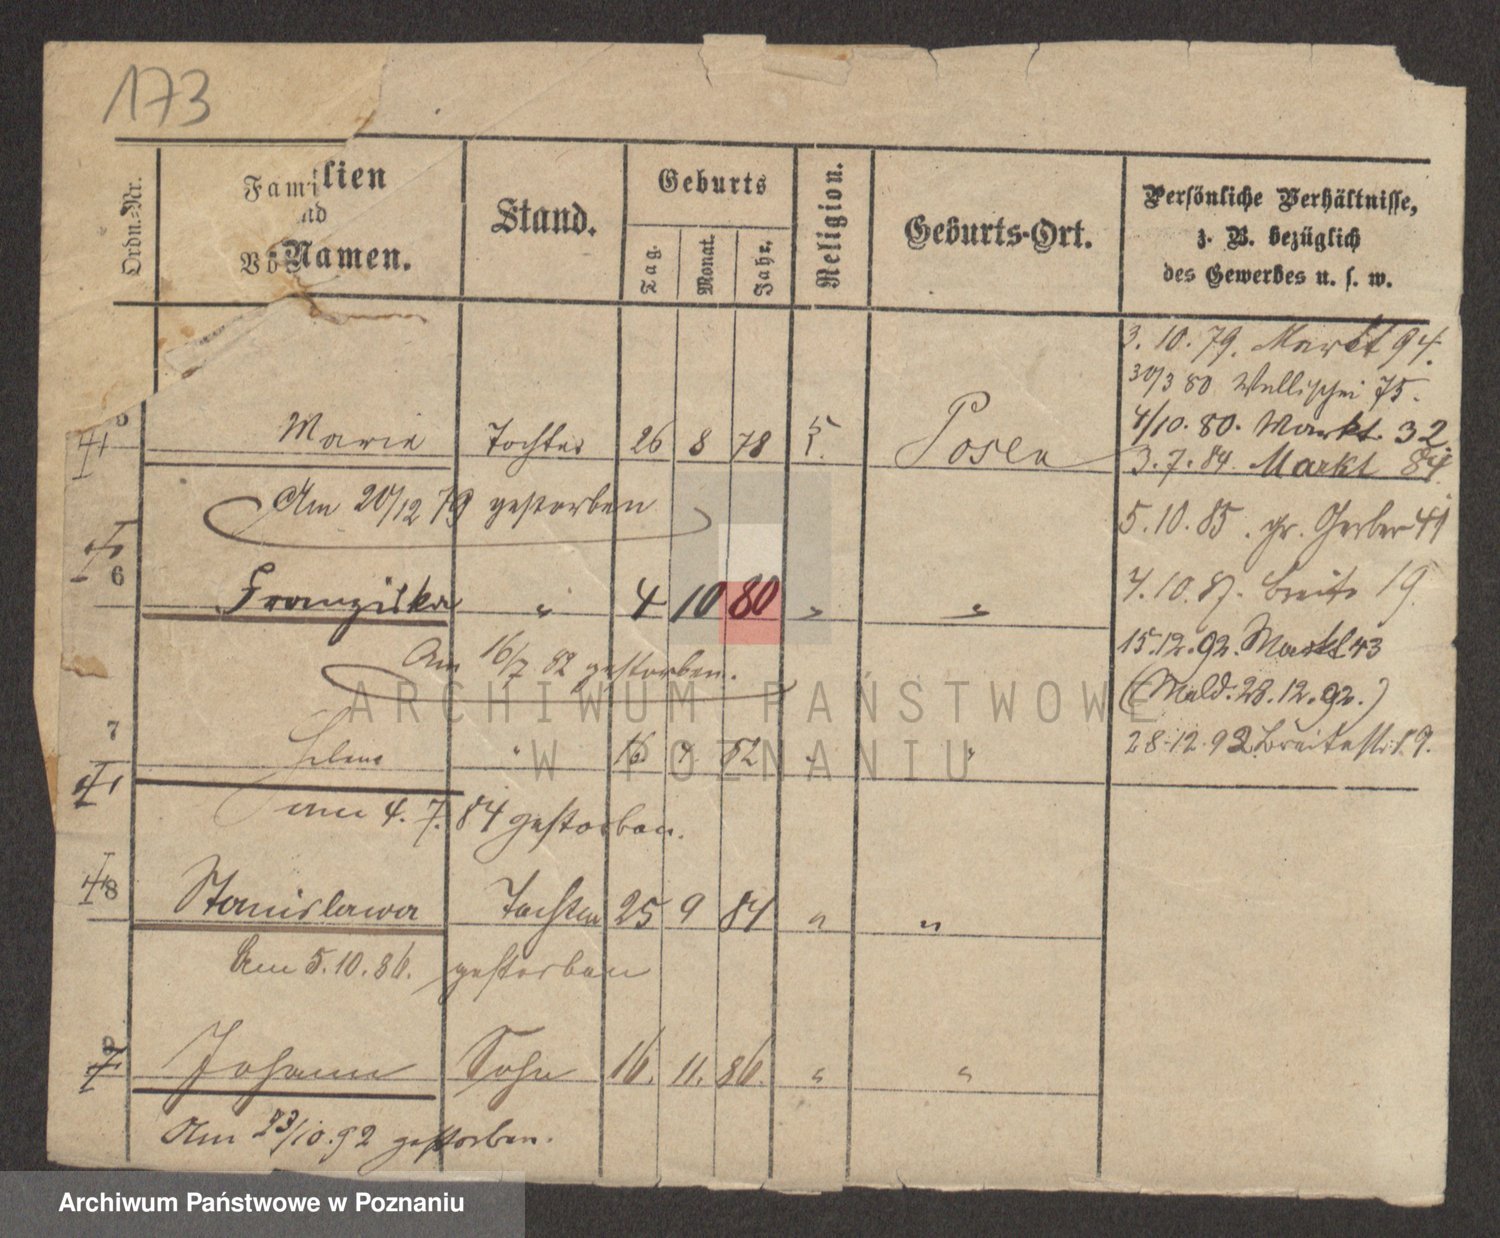 173
Ordn.-Nr.
Familien
und
Vor Namen.
Stand.
Geburts
Tag.
Monat.
Jahr.
Religion.
Geburts-Ort.
Persönliche Verhältnisse,
z. B. bezüglich
des Gewerbes u. s. w.
3. 10. 79. Markt 94.
30/3 80 Wallischei 75.
4/10. 80. Markt. 32
5 Marie Tochter 26 8 78 Posen
3. 7. 84. Markt 84.
Am 20/12 79 gestorben
5. 10. 85. gr. Gerber 41
6 Franziska " 4 10 80 " "
4. 10. 87. Breite 19.
Am 16/7 82 gestorben.
15.12.92. Markt 43
(Meld. 28.12.92.)
7 Helene " 16 7 82 " "
28.12.92 Breitestr. 19.
am 4. 7. 84 gestorben.
8 Stanislawa Tochter 25 9 84 " "
Am 5. 10. 86. gestorben
9 Johann Sohn 16. 11. 86. " "
Am 23/10. 92 gestorben.
ARCHIWUM PAŃSTWOWE
W POZNANIU
Archiwum Państwowe w Poznaniu